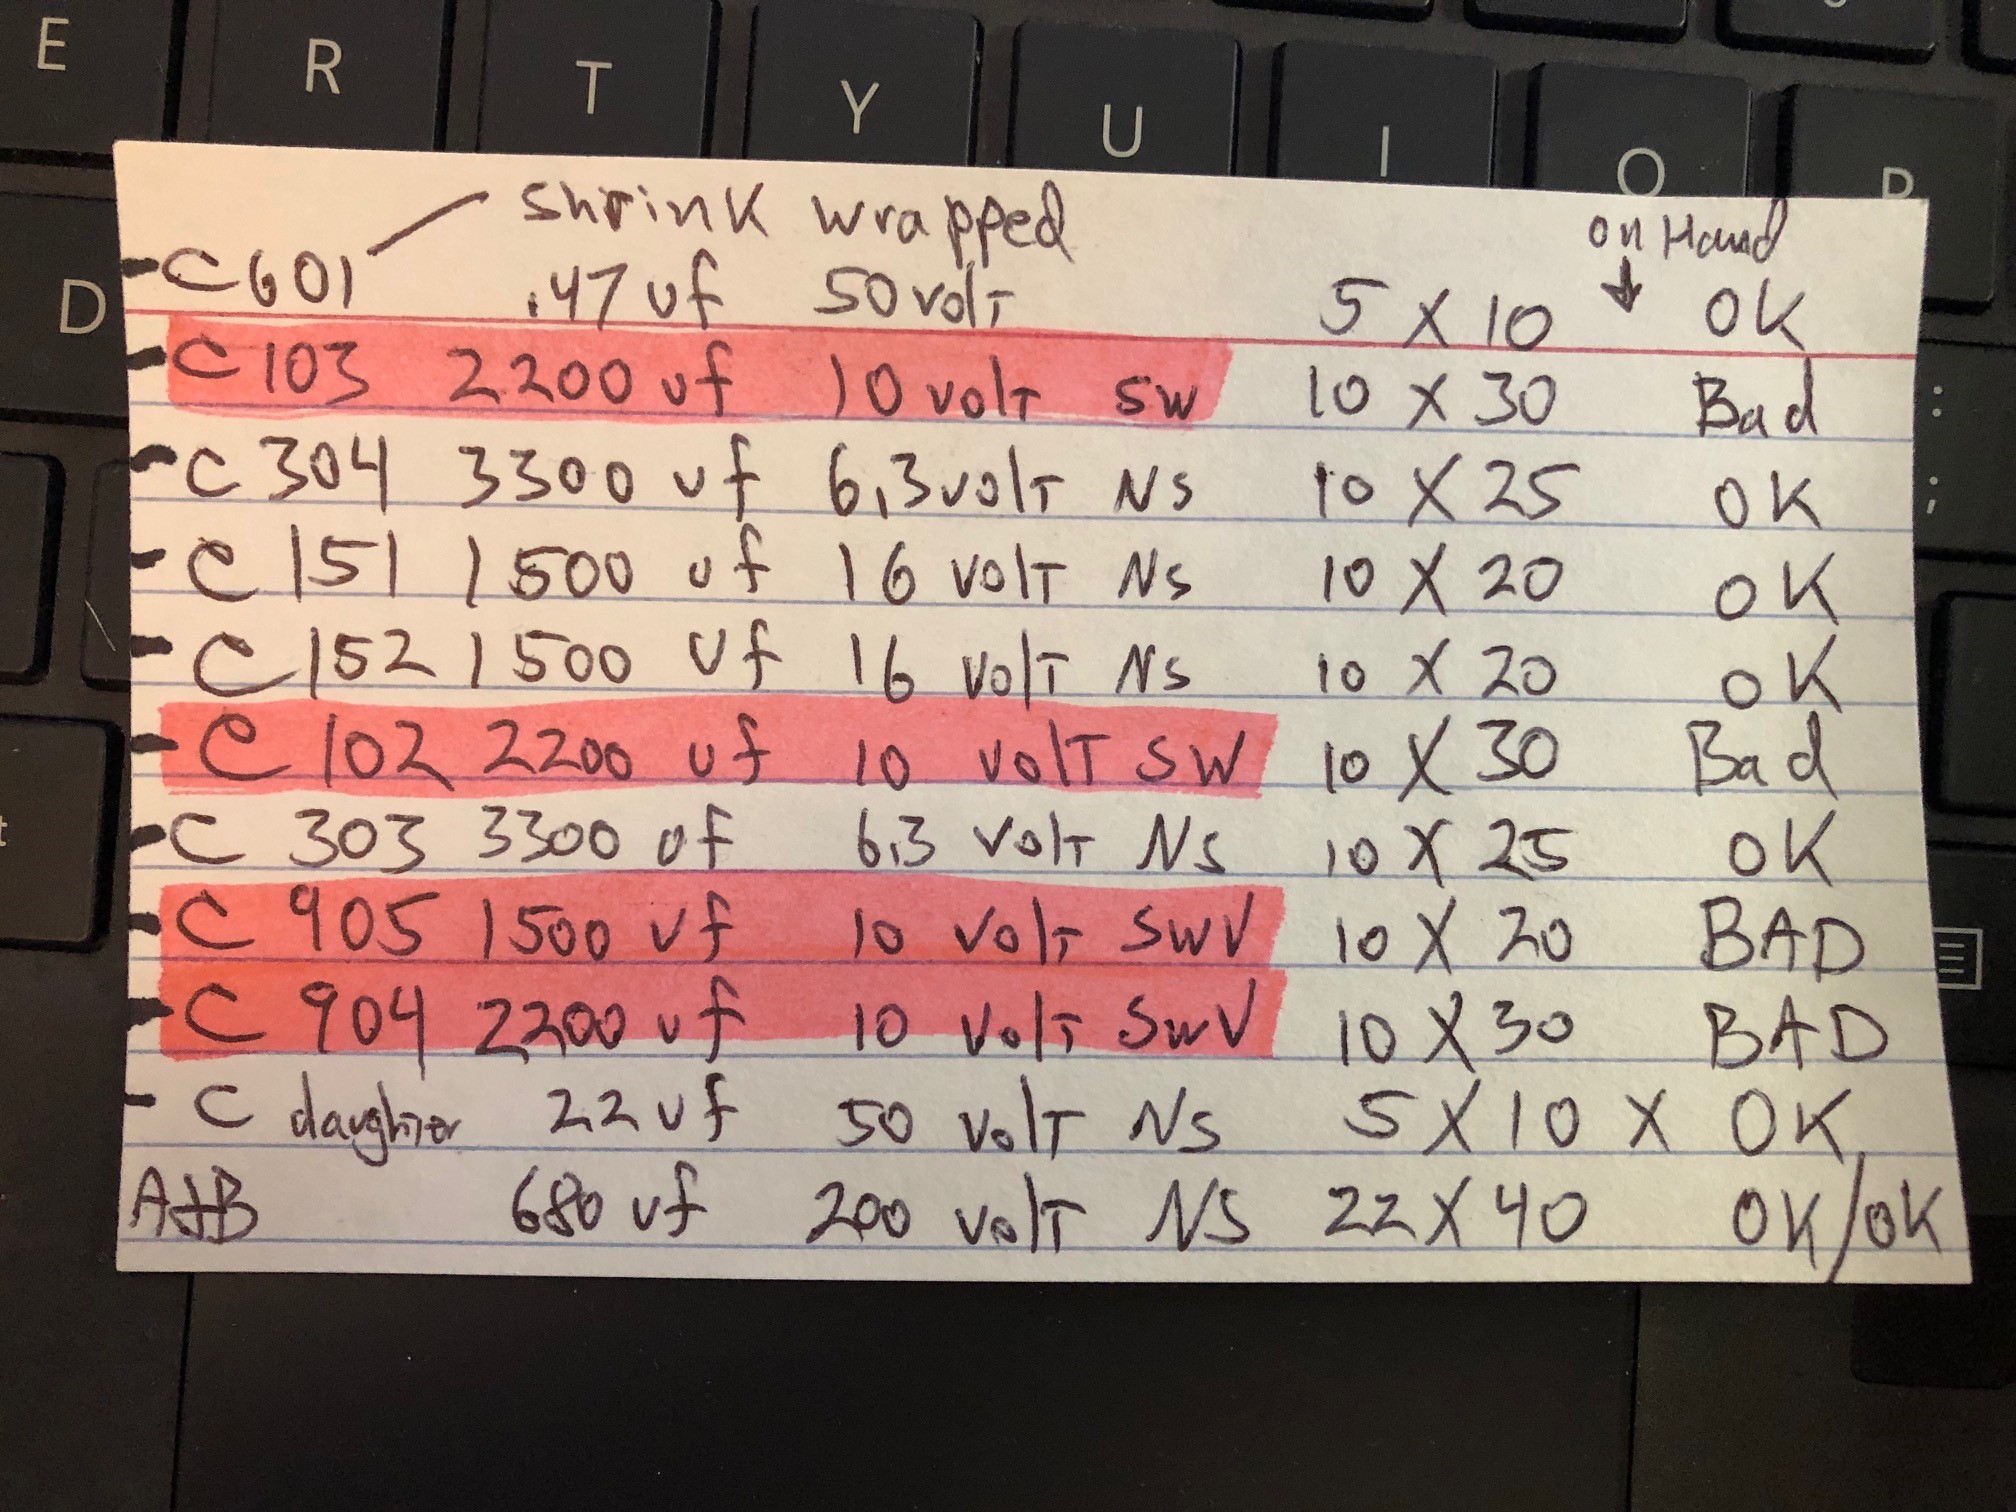 E R T Y U I O P
D
shrink wrapped
on Hand
-C601 .47 uf 50 volt 5 X 10 ↓ OK
-C103 2200 uf 10 volt SW 10 X 30 Bad
-C304 3300 uf 6.3 volt NS 10 X 25 OK
-C151 1500 uf 16 volt NS 10 X 20 OK
-C152 1500 uf 16 volt NS 10 X 20 OK
-C102 2200 uf 10 volt SW 10 X 30 Bad
-C 303 3300 uf 6.3 volt NS 10 X 25 OK
-C 905 1500 uf 10 volt SWV 10 X 20 BAD
-C 904 2200 uf 10 volt SWV 10 X 30 BAD
-C daughter 22 uf 50 volt NS 5 X 10 X OK
A+B 680 uf 200 volt NS 22 X 40 OK/OK
:
;